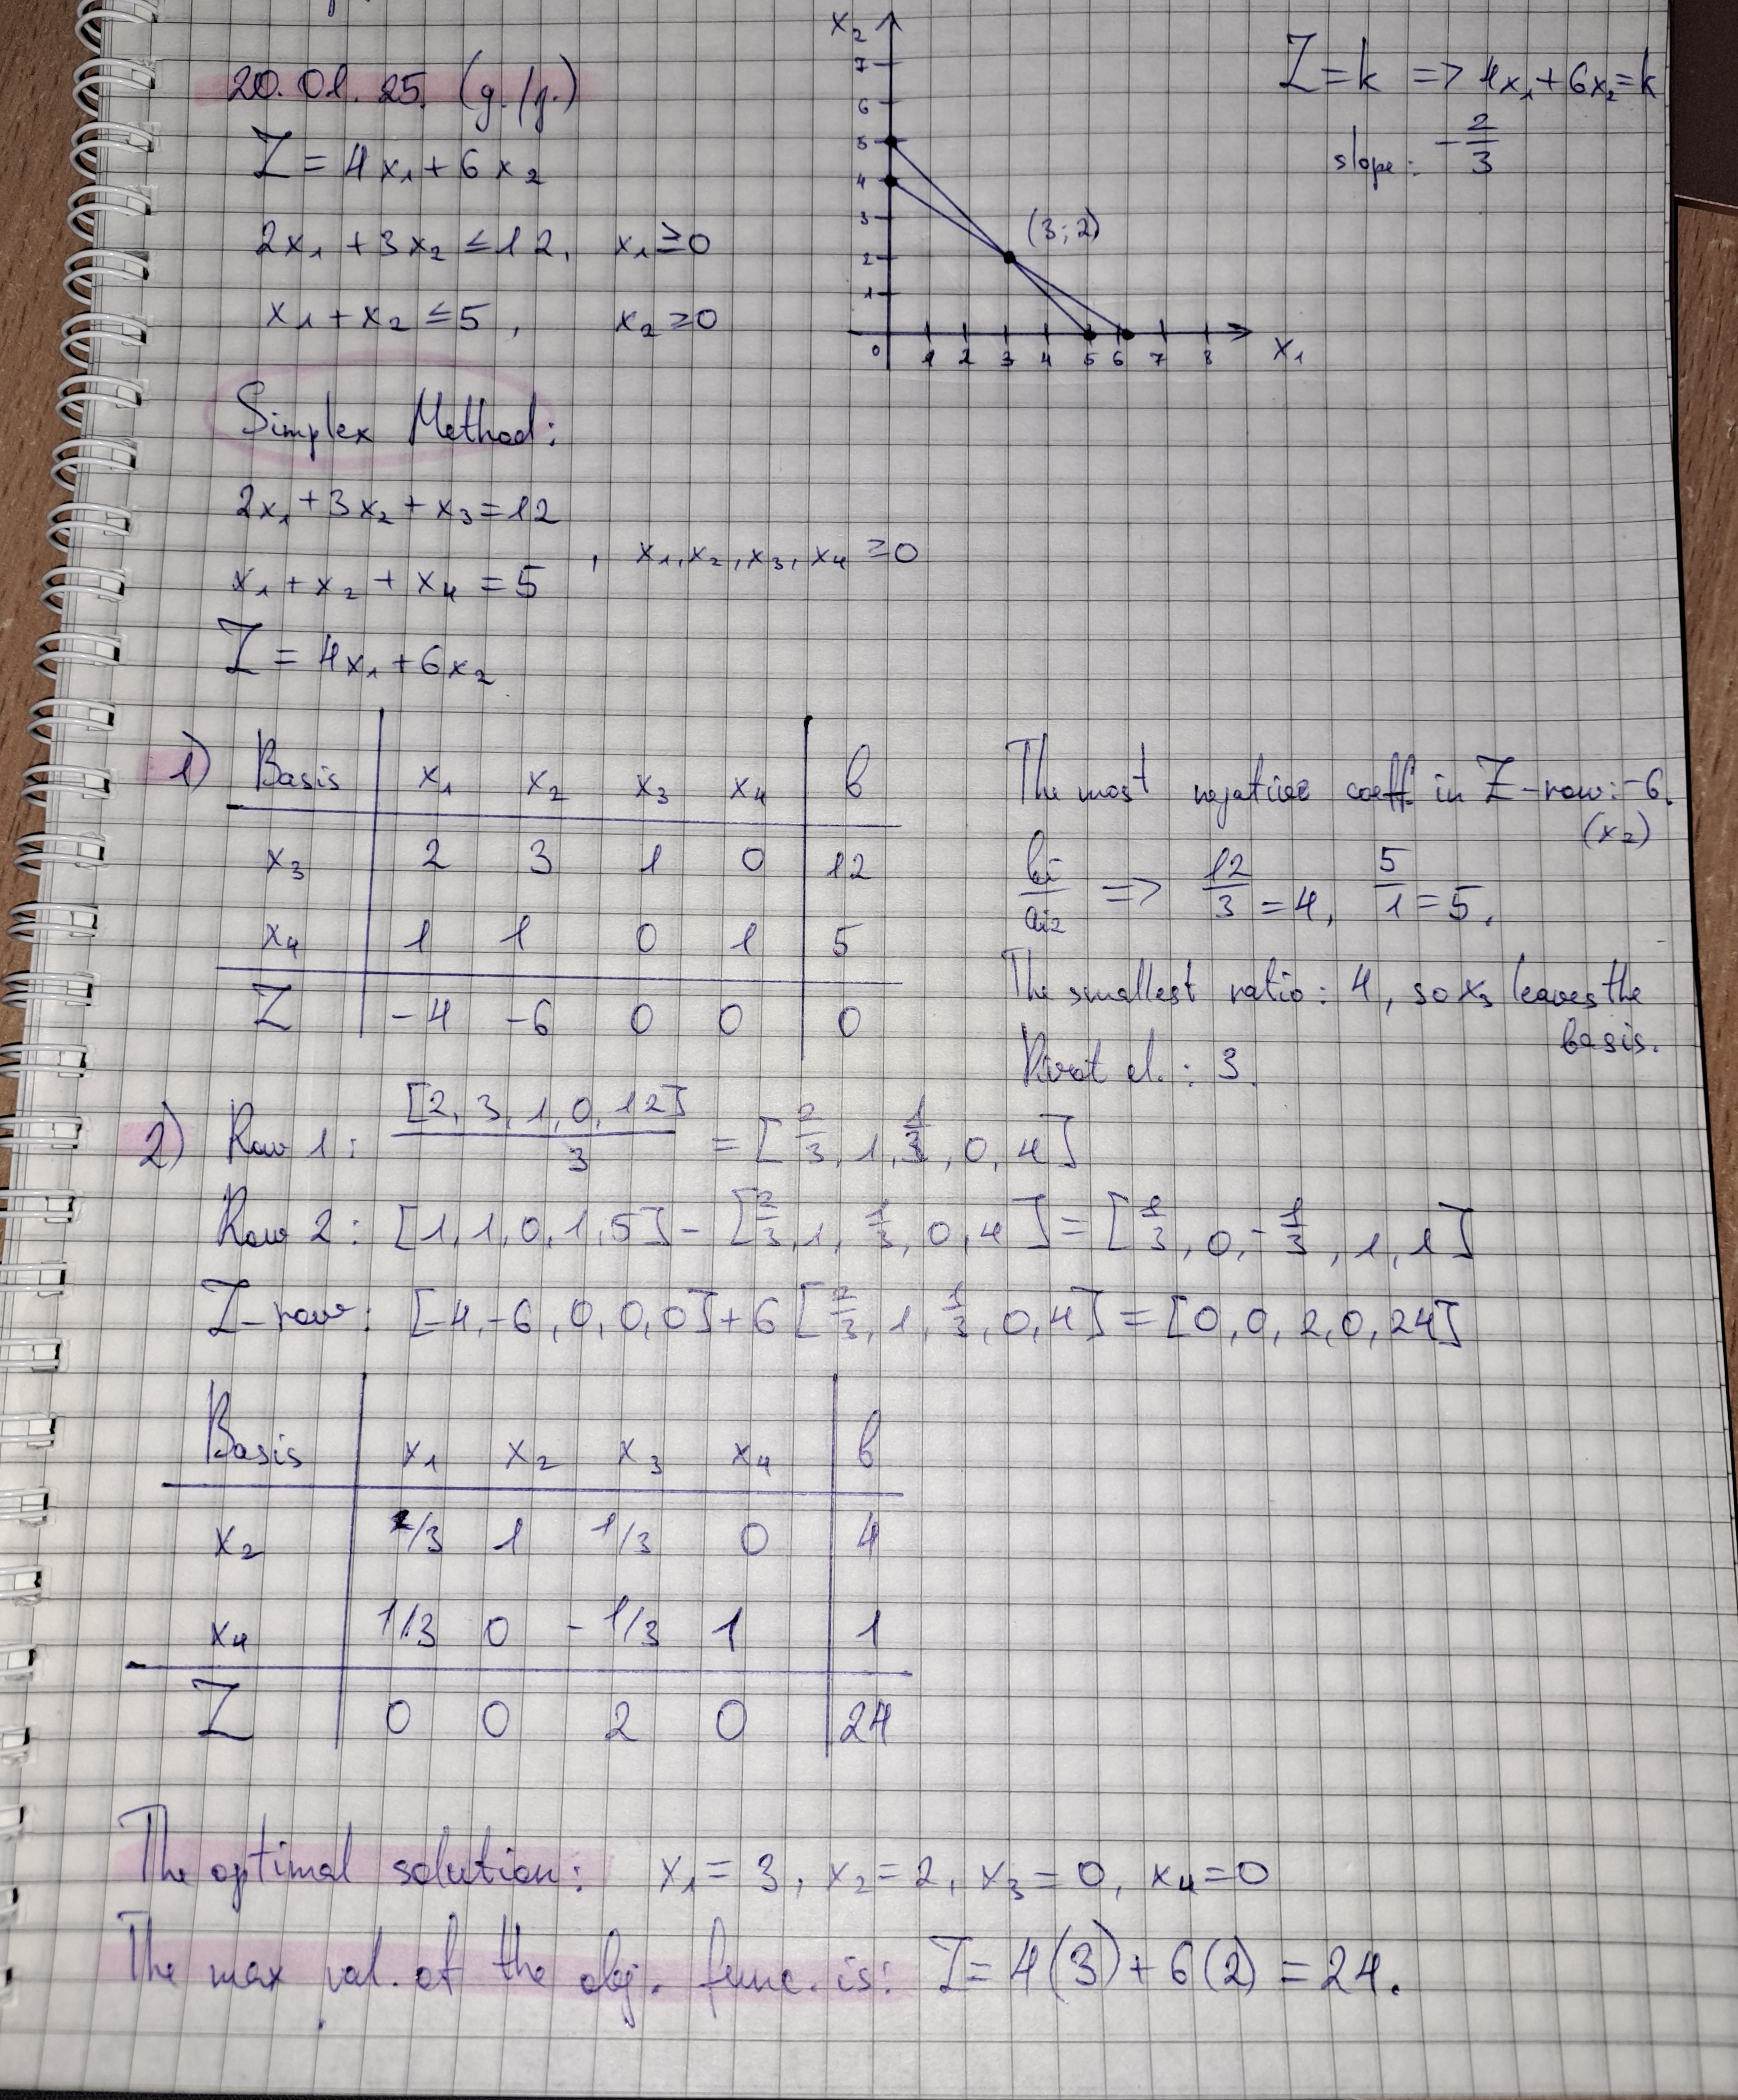 20.01.25. (g./j.)
Z = 4x₁ + 6x₂
2x₁ + 3x₂ ≤ 12, x₁ ≥ 0
x₁ + x₂ ≤ 5, x₂ ≥ 0
x₂
7
6
5
4
3
2
1
0 1 2 3 4 5 6 7 8
x₁
(3; 2)
Z = k => 4x₁ + 6x₂ = k
slope: -2/3
Simplex Method:
2x₁ + 3x₂ + x₃ = 12
x₁ + x₂ + x₄ = 5 , x₁, x₂, x₃, x₄ ≥ 0
Z = 4x₁ + 6x₂
1) Basis x₁ x₂ x₃ x₄ b
x₃ 2 3 1 0 12
x₄ 1 1 0 1 5
Z -4 -6 0 0 0
The most negative coeff. in Z-row: -6.
(x₂)
bi/ai2 => 12/3 = 4, 5/1 = 5.
The smallest ratio: 4, so x₃ leaves the
basis.
Pivot el.: 3.
2) Row 1: [2, 3, 1, 0, 12]/3 = [2/3, 1, 1/3, 0, 4]
Row 2: [1, 1, 0, 1, 5] - [2/3, 1, 1/3, 0, 4] = [1/3, 0, -1/3, 1, 1]
Z-row: [-4, -6, 0, 0, 0] + 6 [2/3, 1, 1/3, 0, 4] = [0, 0, 2, 0, 24]
Basis x₁ x₂ x₃ x₄ b
x₂ 2/3 1 1/3 0 4
x₄ 1/3 0 -1/3 1 1
Z 0 0 2 0 24
The optimal solution: x₁ = 3, x₂ = 2, x₃ = 0, x₄ = 0
The max val. of the obj. func. is: Z = 4(3) + 6(2) = 24.